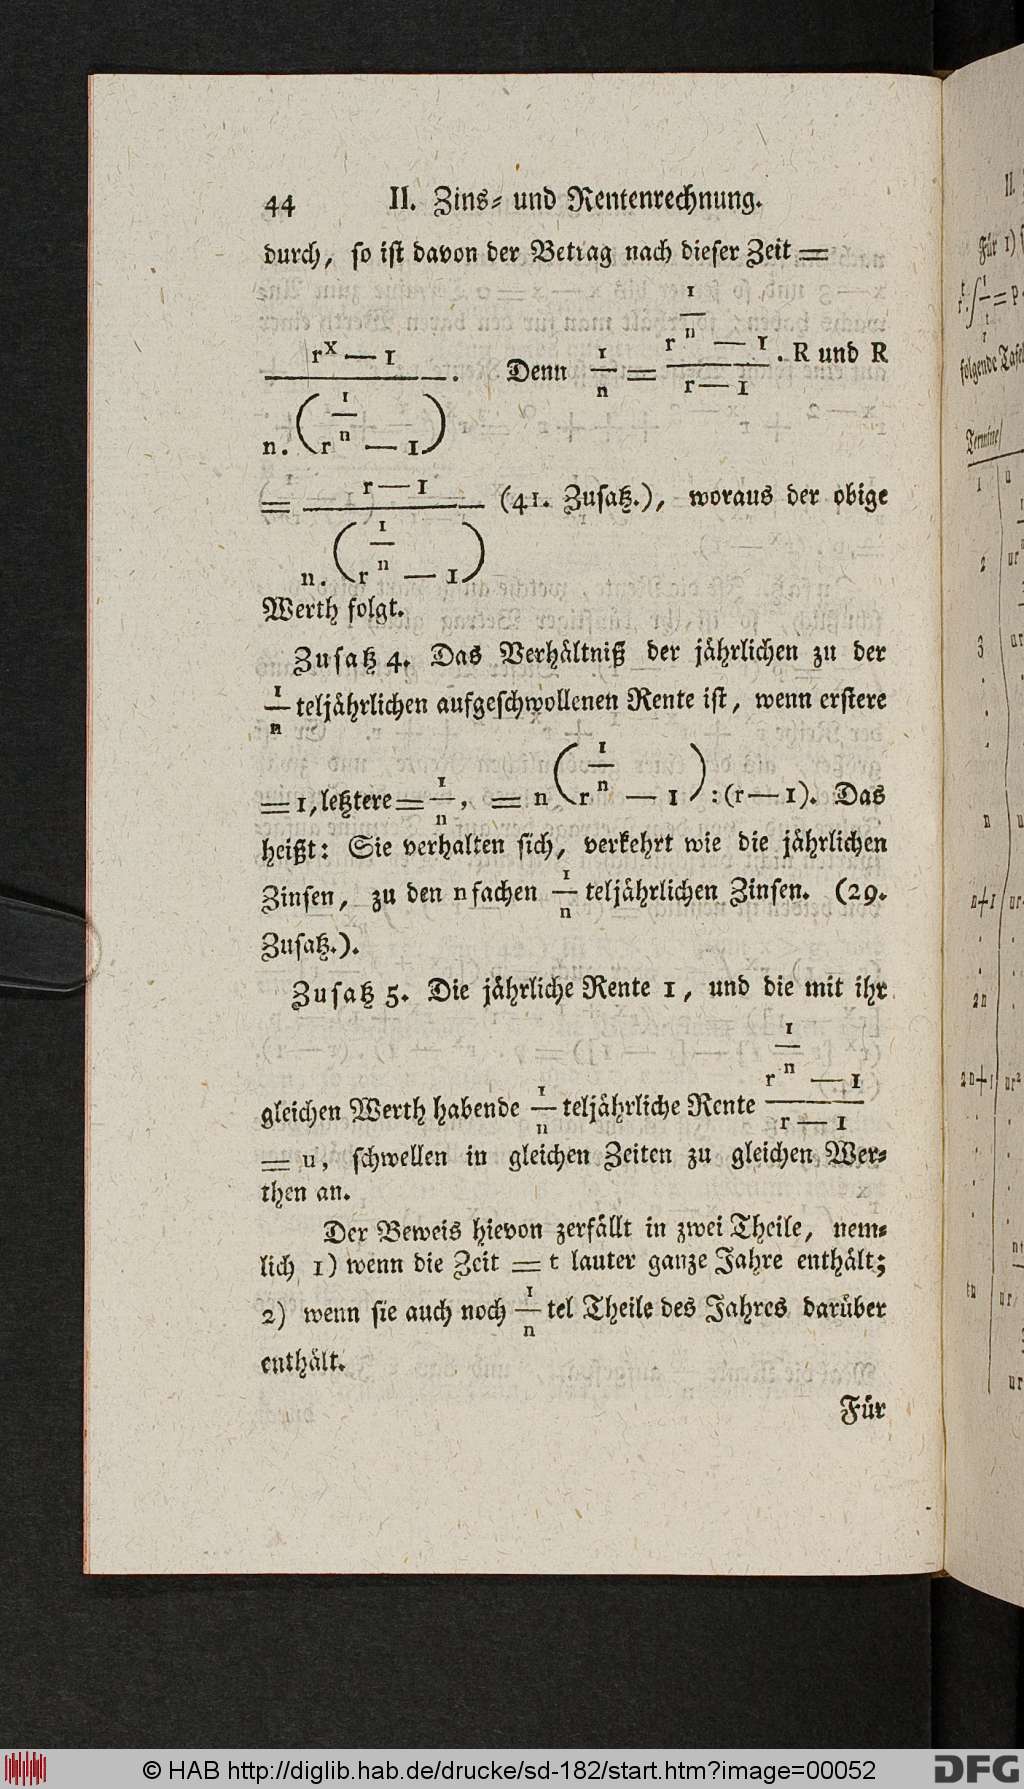 44 II. Zins- und Rentenrechnung.
durch, so ist davon der Betrag nach dieser Zeit =
(r^x — 1) / (n. (r^(1/n) — 1)). Denn 1/n = (r^(1/n) — 1) / (r — 1) . R und R
= (r — 1) / (n. (r^(1/n) — 1)) (41. Zusatz.), woraus der obige
Werth folgt.
Zusatz 4. Das Verhältniß der jährlichen zu der
1/n teljährlichen aufgeschwollenen Rente ist, wenn erstere
= 1, letztere = 1/n, = n (r^(1/n) — 1) : (r — 1). Das
heißt: Sie verhalten sich, verkehrt wie die jährlichen
Zinsen, zu den n fachen 1/n teljährlichen Zinsen. (29.
Zusatz.).
Zusatz 5. Die jährliche Rente 1, und die mit ihr
gleichen Werth habende 1/n teljährliche Rente (r^(1/n) — 1) / (r — 1)
= u, schwellen in gleichen Zeiten zu gleichen Wer-
then an.
Der Beweis hievon zerfällt in zwei Theile, nem-
lich 1) wenn die Zeit = t lauter ganze Jahre enthält;
2) wenn sie auch noch 1/n tel Theile des Jahres darüber
enthält.
Für
II.
Für 1)
folgende Tafel
Termine
1
2
3
n
n+1
2n
2n+1
tn
© HAB http://diglib.hab.de/drucke/sd-182/start.htm?image=00052
DFG